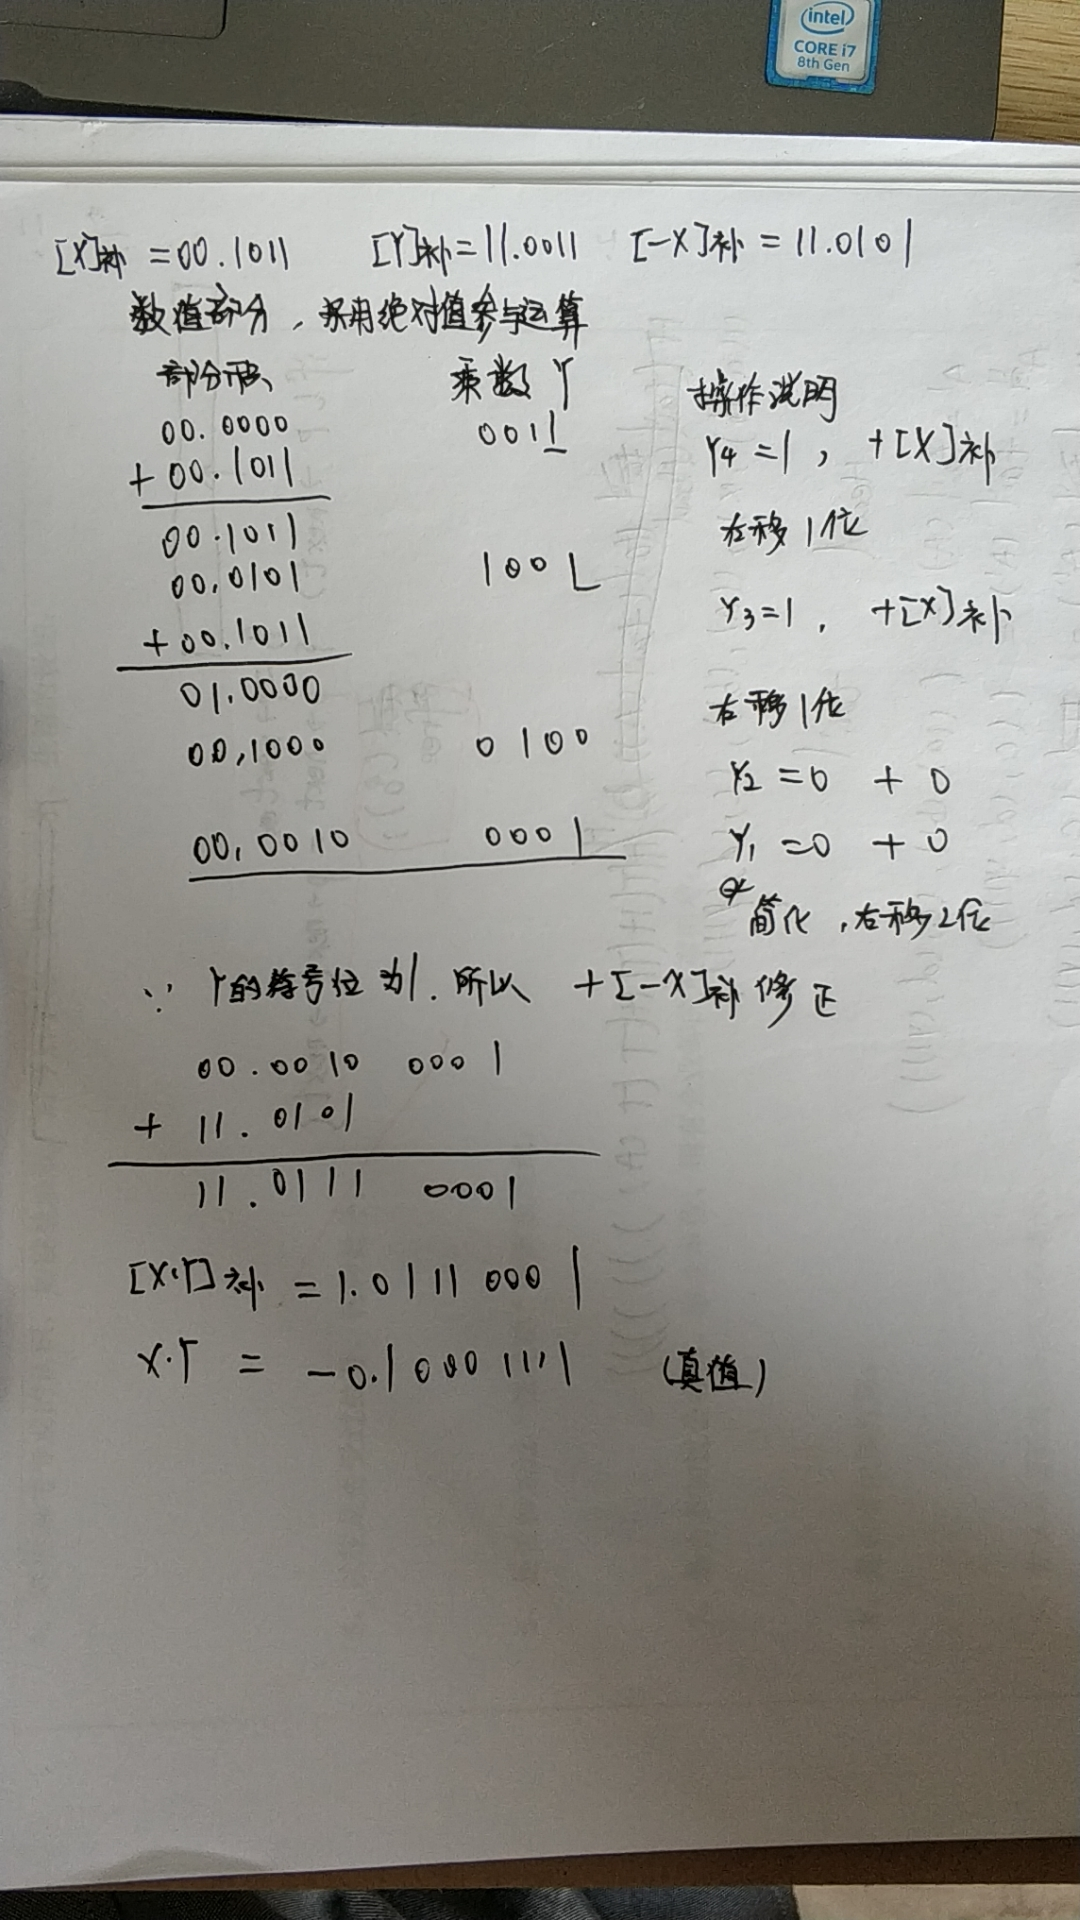 intel
CORE i7
8th Gen
[X]补 = 00.1011 [Y]补 = 11.0011 [-X]补 = 11.0101
数值部分，采用绝对值参与运算
部分积 乘数Y 操作说明
00.0000 0011 Y4 = 1 ， +[X]补
+ 00.1011
00.1011 右移1位
00.0101 1001
+00.1011 Y3=1 ， +[X]补
01.0000 右移1位
00.1000 0100 Y2 = 0 + 0
00.0010 0001 Y1 = 0 + 0
简化，右移2位
∵ Y的符号位为1，所以 +[-X]补修正
00.0010 0001
+ 11.0101
11.0111 0001
[X·Y]补 = 1.01110001
X·Y = -0.10001111 (真值)